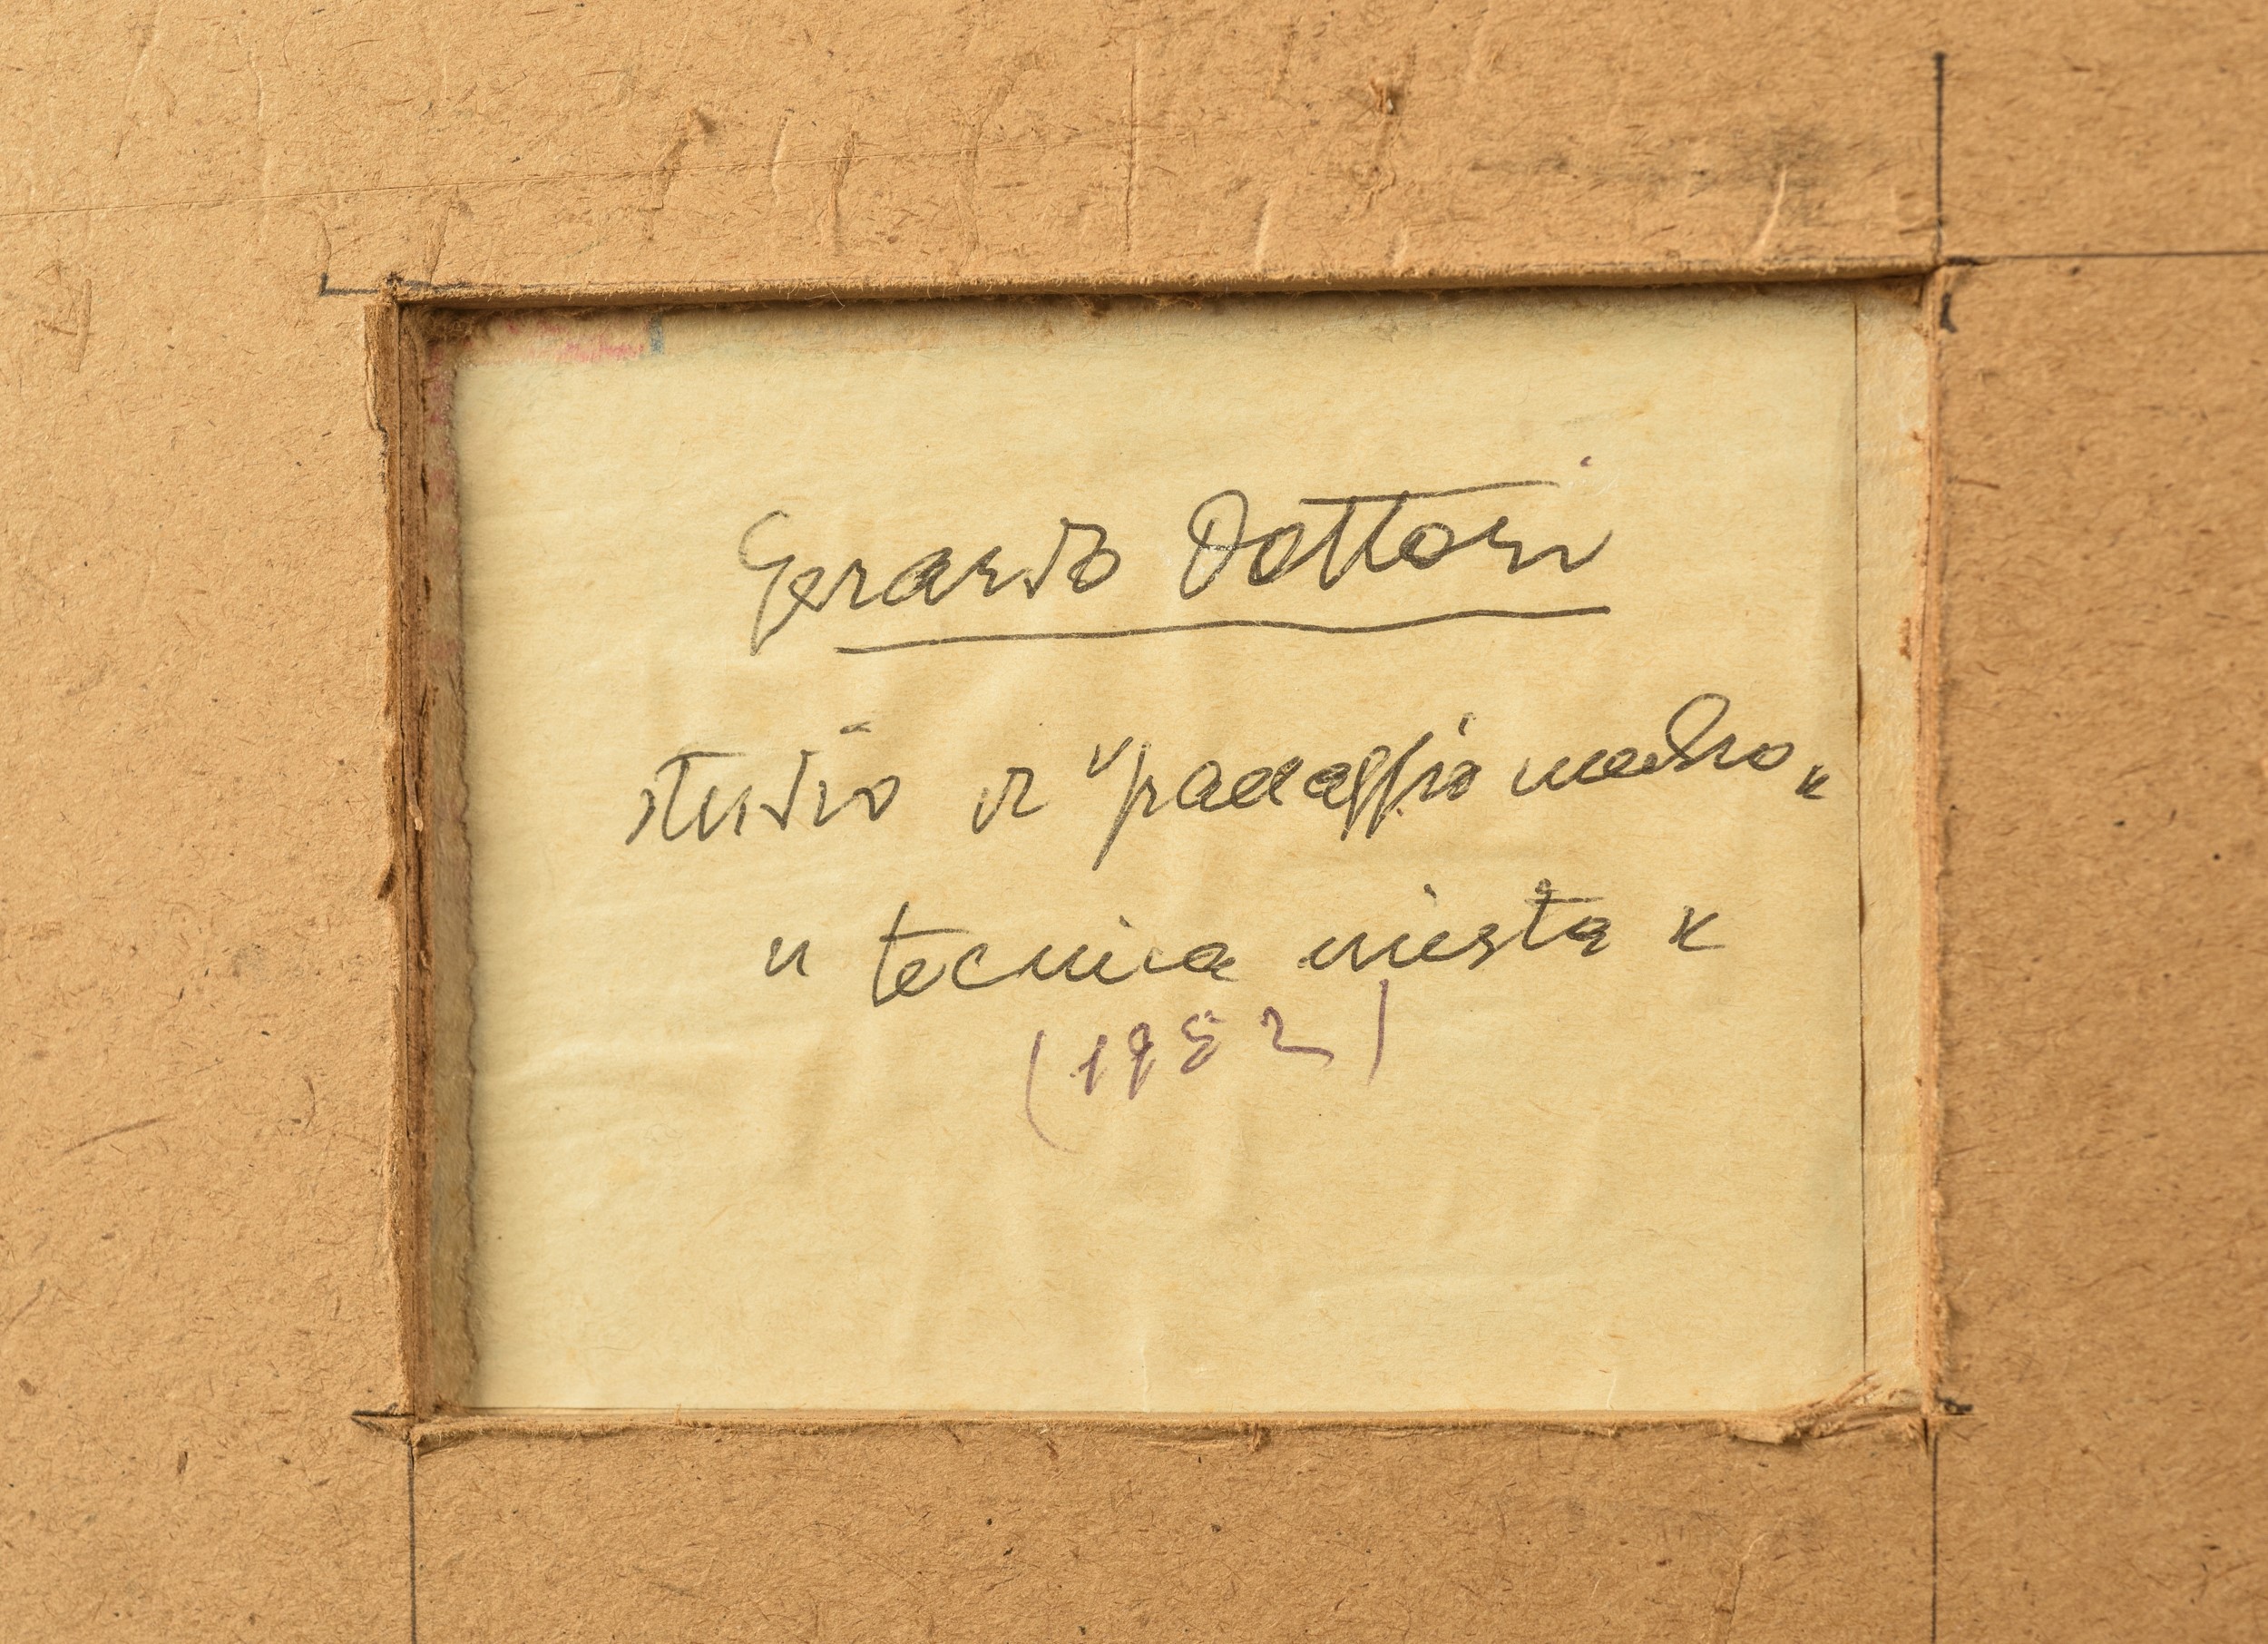 Gerardo Dottori
studio di "paesaggio
" tecnica mista "
(1952)